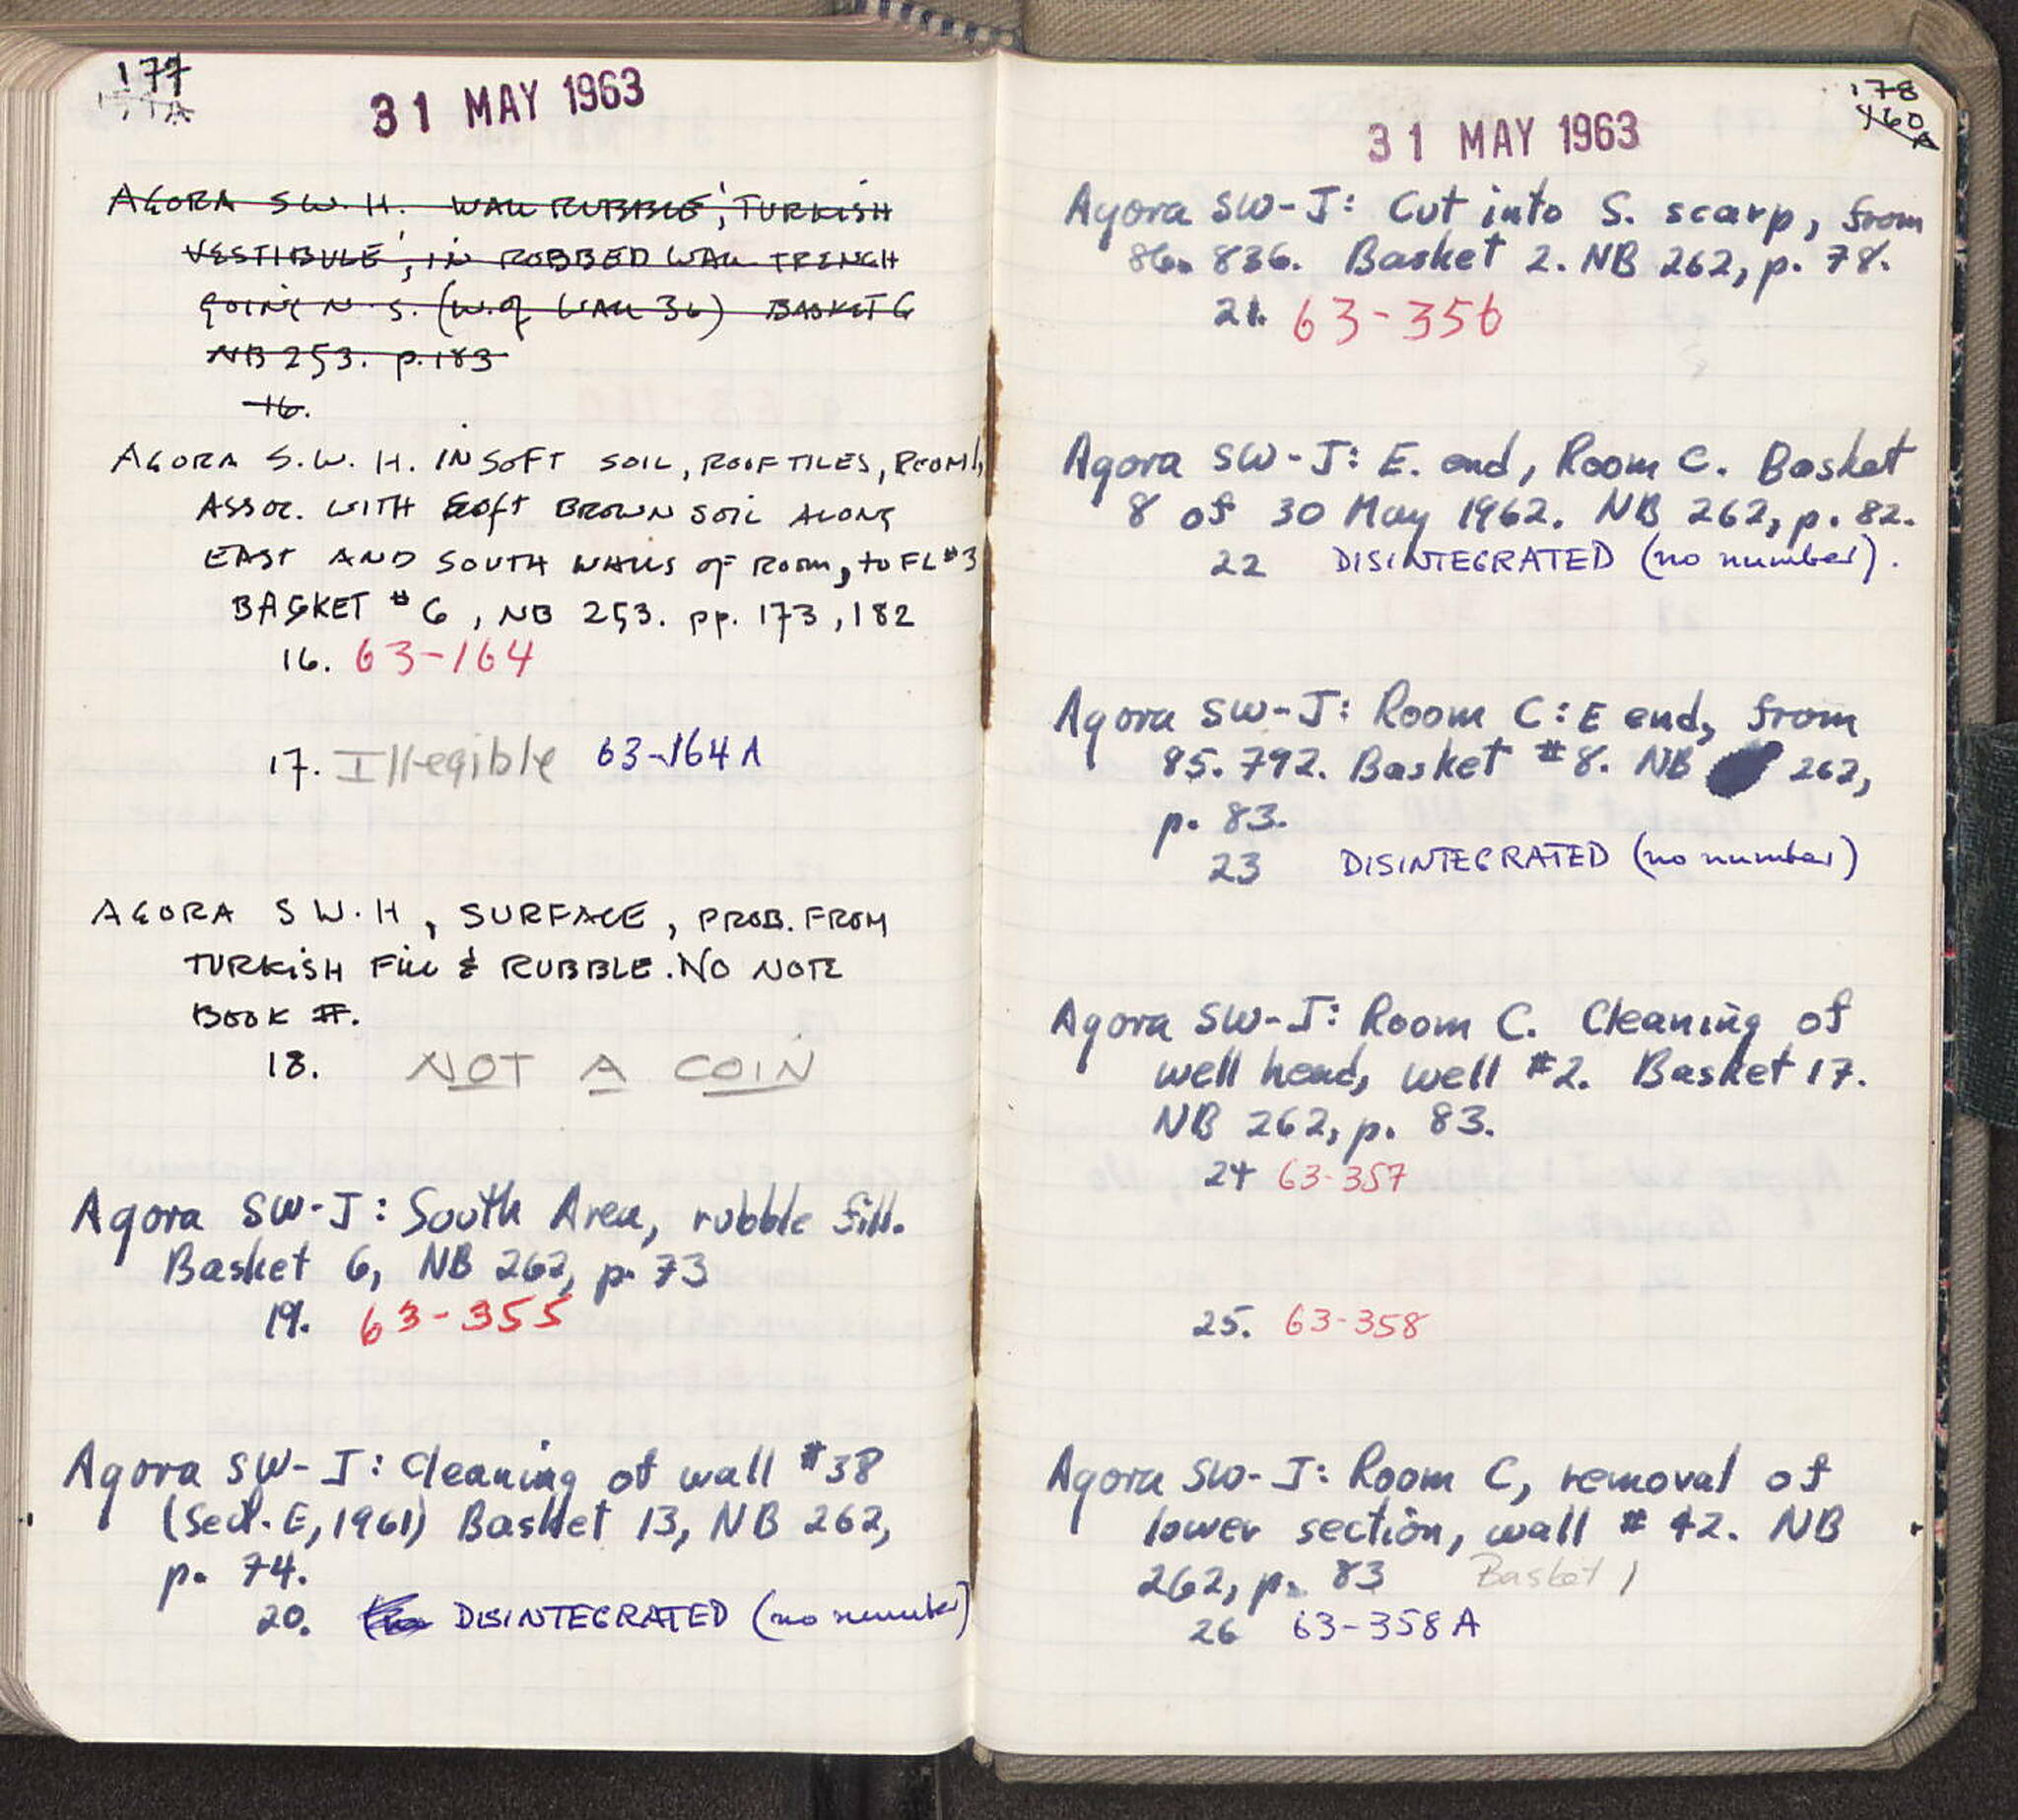 177
31 MAY 1963
AGORA S.W. H. WALL RUBBLE, 'TURKISH
VESTIBULE', IN ROBBED WALL TRENCH
GOING N-S. (W. of WALL 36) BASKET 6
NB 253. p. 183
16.
AGORA S.W. H. IN SOFT SOIL, ROOF TILES,
ASSOC. WITH SOFT BROWN SOIL ALONG
EAST AND SOUTH WALLS OF ROOM, to FL #3
BASKET #6, NB 253. pp. 173, 182
16. 63-164
17. Illegible 63-164A
AGORA S W. H, SURFACE, PROB. FROM
TURKISH FILL & RUBBLE. NO NOTE
BOOK #.
18. NOT A COIN
Agora SW-J: South Area, rubble fill.
Basket 6, NB 262, p. 73
19. 63-355
Agora SW-J: Cleaning of wall #38
(Sect. E, 1961) Basket 13, NB 262,
p. 74.
20. DISINTEGRATED (no number)
178
160
A
31 MAY 1963
Agora SW-J: Cut into S. scarp, from
86.836. Basket 2. NB 262, p. 78.
21. 63-356
Agora SW-J: E. end, Room C. Basket
8 of 30 May 1962. NB 262, p. 82.
22 DISINTEGRATED (no number).
Agora SW-J: Room C: E end, from
85.792. Basket #8. NB 262,
p. 83.
23 DISINTEGRATED (no number)
Agora SW-J: Room C. Cleaning of
well head, well #2. Basket 17.
NB 262, p. 83.
24 63-357
25. 63-358
Agora SW-J: Room C, removal of
lower section, wall # 42. NB
262, p. 83 Basket 1
26 63-358A